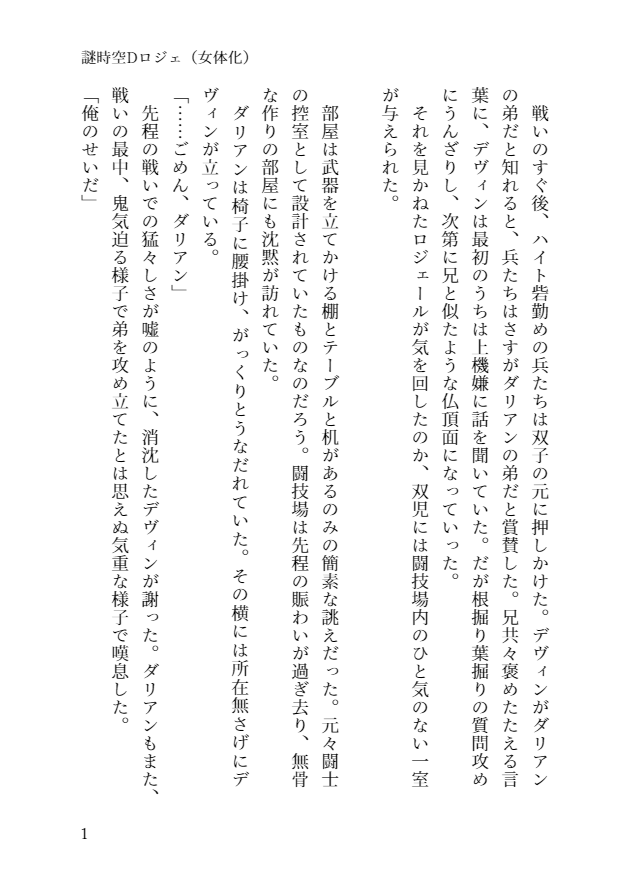 謎時空Dロジェ（女体化）
　戦いのすぐ後、ハイト砦勤めの兵たちは双子の元に押しかけた。デヴィンがダリアン
の弟だと知れると、兵たちはさすがダリアンの弟だと賞賛した。兄共々褒めたたえる言
葉に、デヴィンは最初のうちは上機嫌に話を聞いていた。だが根掘り葉掘りの質問攻め
にうんざりし、次第に兄と似たような仏頂面になっていった。
　それを見かねたロジェールが気を回したのか、双児には闘技場内のひと気のない一室
が与えられた。
　部屋は武器を立てかける棚とテーブルと机があるのみの簡素な誂えだった。元々闘士
の控室として設計されていたものなのだろう。闘技場は先程の賑わいが過ぎ去り、無骨
な作りの部屋にも沈黙が訪れていた。
　ダリアンは椅子に腰掛け、がっくりとうなだれていた。その横には所在無さげにデ
ヴィンが立っている。
「……ごめん、ダリアン」
　先程の戦いでの猛々しさが嘘のように、消沈したデヴィンが謝った。ダリアンもまた、
戦いの最中、鬼気迫る様子で弟を攻め立てたとは思えぬ気重な様子で嘆息した。
「俺のせいだ」
1